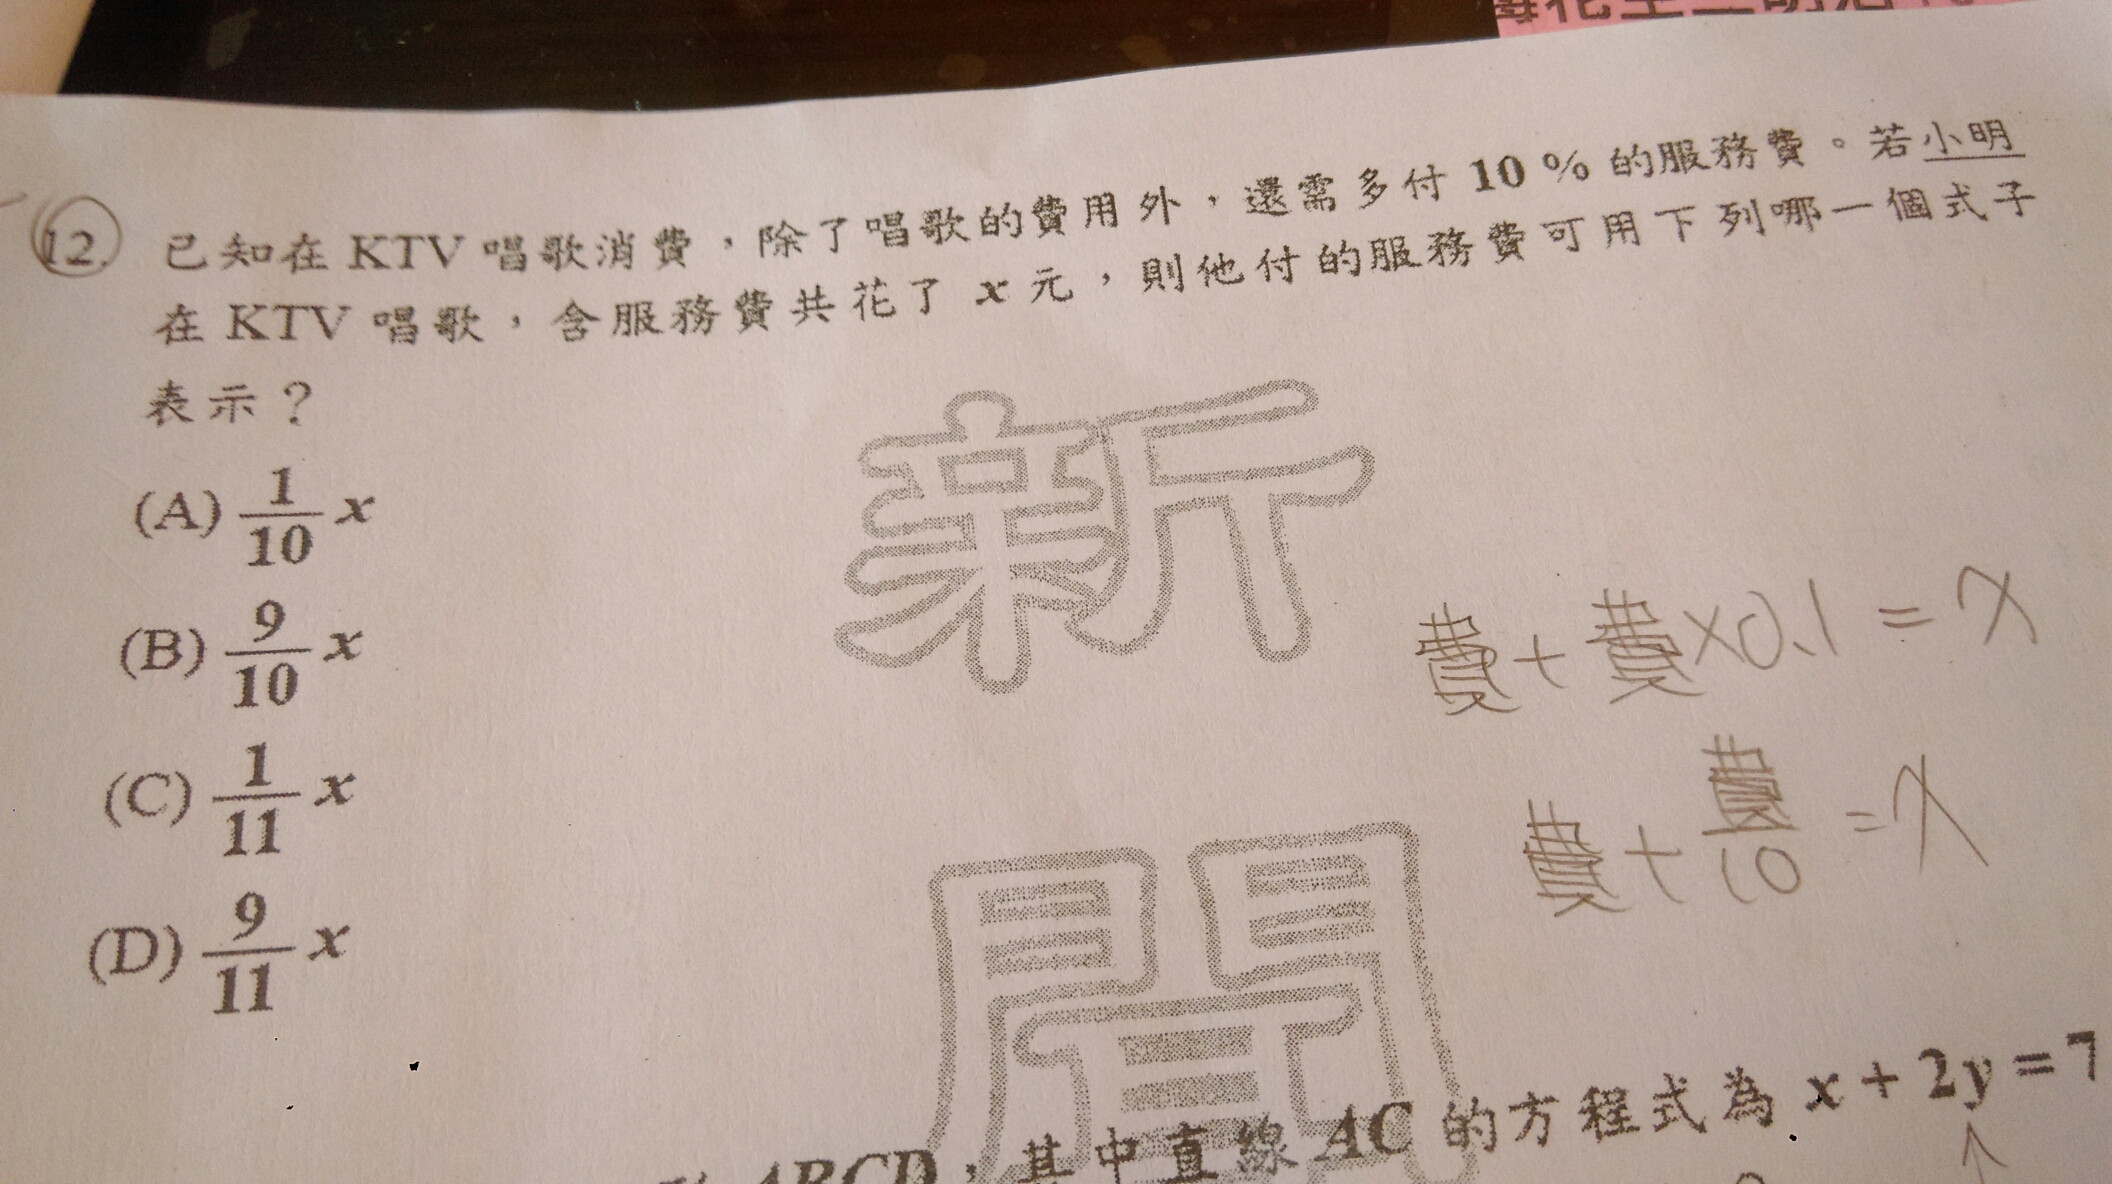 12. 已知在 KTV 唱歌消費，除了唱歌的費用外，還需多付 10 % 的服務費。若小明
在 KTV 唱歌，含服務費共花了 x 元，則他付的服務費可用下列哪一個式子
表示？
(A) 1/10 x
(B) 9/10 x
(C) 1/11 x
(D) 9/11 x
新
費+費×0.1=x
費+費/10=x
ABCD，其中直線 AC 的方程式為 x + 2y = 7